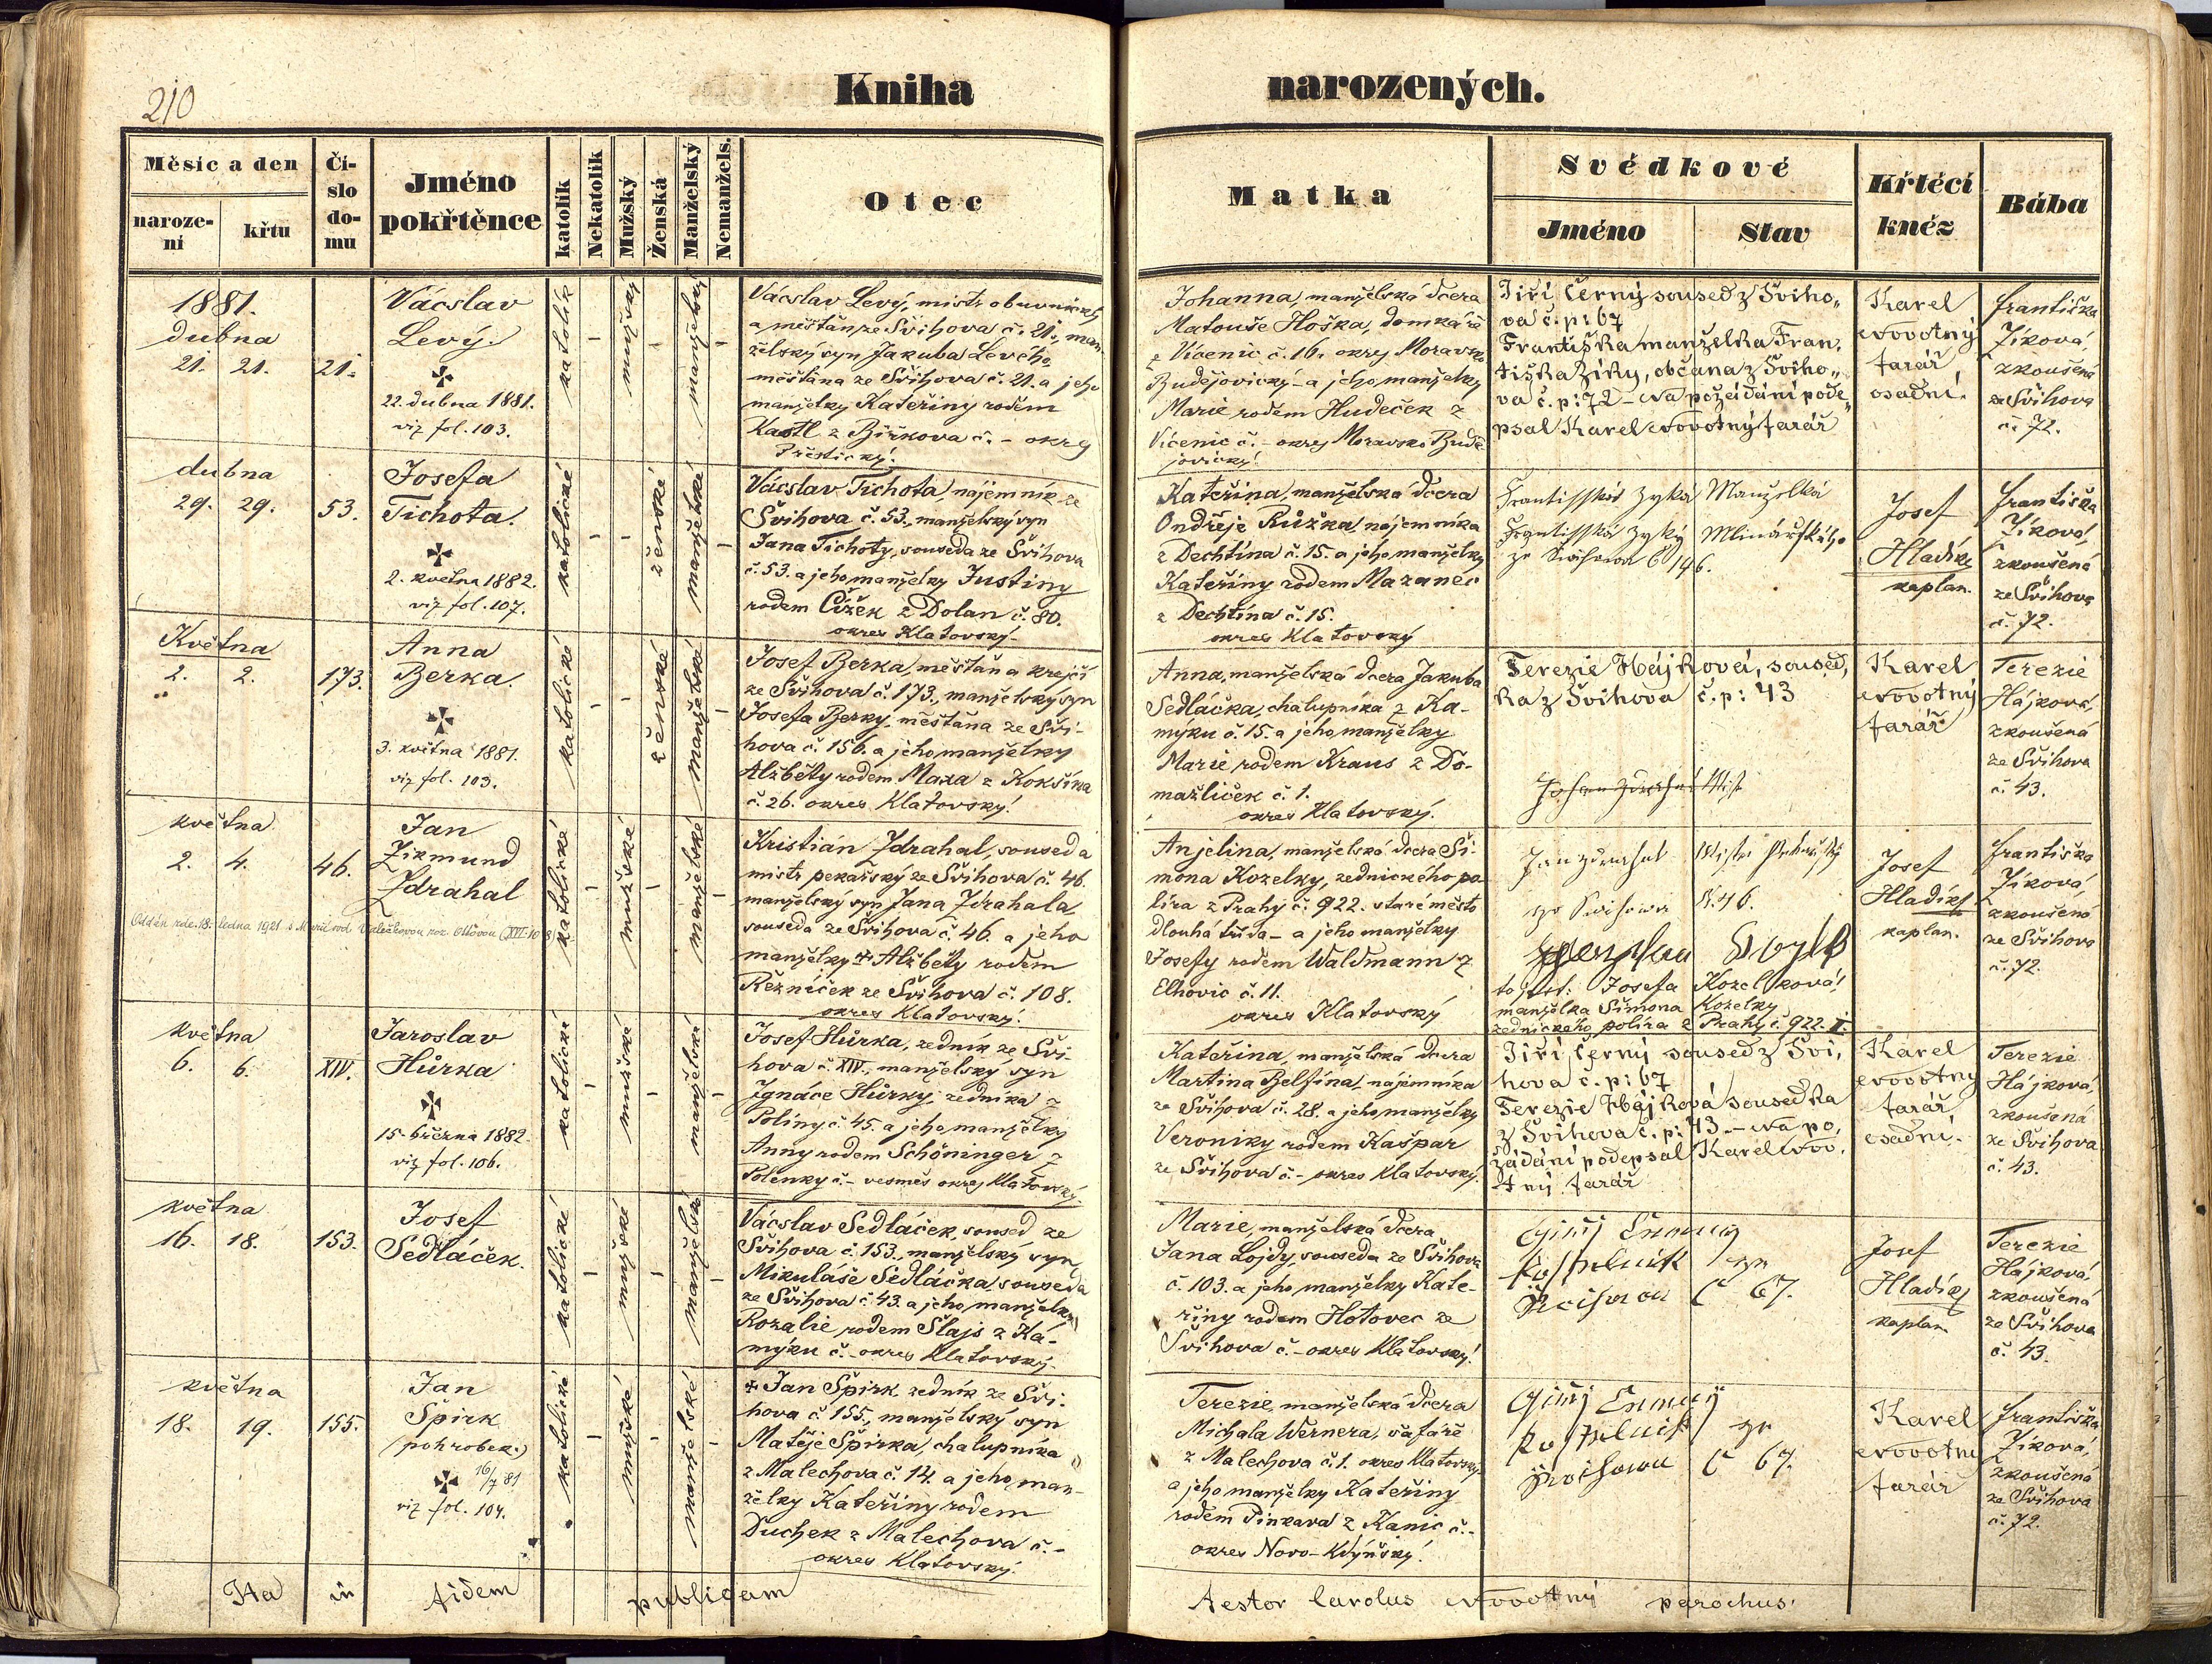 210
Kniha
narozených.
Měsíc a den
naroze-
ní
křtu
Čí-
slo
do-
mu
Jméno
pokřtěnce
katolík
Nekatolík
Mužský
Ženská
Manželský
Nemanžels.
Otec
Matka
Svědkové
Jméno
Stav
Křtécí
kněz
Bába
1881.
dubna
21. 21. 21.
Vácslav
Levý.
22. dubna 1881.
viz fol. 103.
katolík
mužský
manželský
Vácslav Levý, mistr obuvnický
a měšťan ze Švihova č. 21., man-
želský syn Jakuba Levého,
měšťana ze Švihova č. 21. a jeho
manželky Kateřiny rodem
Kastl z Biřkova č. - okres
Přestický.
Johanna, manželská dcera
Matouše Hoška, domkáře
z Vícenic č. 16. okres Moravsko
Budějovický - a jeho manželky
Marie rodem Hudeček z
Vícenic č. - okres Moravsko Budě-
jovický.
Jiří Černý soused z Šviho„
va č. p: 67
Františka manželka Fran,
tiška Zíky, občana z Šviho„
va č. p: 72 - Na požádání pode„
psal Karel Novotný farář
Karel
Novotný
farář
osadní.
Františka
Zíková,
zkoušená
ze Švihova
č. 72.
dubna
29. 29. 53.
Josefa
Tichota.
2. května 1882.
viz fol. 107.
katolické
ženské
manželské
Vácslav Tichota, nájemník ze
Švihova č. 53., manželský syn
Jana Tichoty, souseda ze Švihova
č. 53. a jeho manželky Justiny
rodem Čížek z Dolan č. 80.
okres Klatovský.
Kateřina, manželská dcera
Ondřeje Růžka, nájemníka
z Dechtína č. 15. a jeho manželky
Kateřiny rodem Mazanec
z Dechtína č. 15.
okres Klatovský
Josef
Hladík
kaplan.
Františka
Zíková,
zkoušená
ze Švihova
č. 72.
Května
2. 2. 173.
Anna
Berka.
3. května 1881.
viz fol. 103.
katolické
ženské
manželské
Josef Berka, měšťan a krejčí
ze Švihova č. 173., manželský syn
Josefa Berky, měšťana ze Švi-
hova č. 156. a jeho manželky
Alžběty rodem Maxa z Kokšína
č. 26. okres Klatovský.
Anna, manželská dcera Jakuba
Sedláčka, chalupníka z Ka-
mýku č. 15. a jeho manželky
Marie, rodem Kraus z Do-
mažliček č. 1.
okres Klatovský.
Terezie Hájková, soused,
ka z Švihova č. p: 43
Karel
Novotný
farář
Terezie
Hájková,
zkoušená
ze Švihova
č. 43.
května
2. 4. 46.
Jan
Zikmund
Zdrahal
katolické
mužské
manželské
Kristián Zdrahal, soused a
mistr pekařský ze Švihova č. 46.
manželský syn Jana Zdrahala,
souseda ze Švihova č. 46. a jeho
manželky Alžběty rodem
Řezníček ze Švihova č. 108.
okres Klatovský.
Anjelina, manželská dcera Ši-
mona Kozelky, zednického po-
líra z Prahy č. 922. staré město
dlouhá třída - a jeho manželky
Josefy rodem Waldmann z
Elhovic č. 11.
okres Klatovský
Josefa Kozelková,
manželka Šimona Kozelky
zednického políra z Prahy č. 922. I.
Josef
Hladík
kaplan.
Františka
Zíková,
zkoušená
ze Švihova
č. 72.
května
6. 6. XIV.
Jaroslav
Hůrka
15. března 1882.
viz fol. 106.
katolické
mužské
manželské
Josef Hůrka, zedník ze Švi-
hova č. XIV., manželský syn
Ignáce Hůrky, zedníka z
Poliny č. 45. a jeho manželky
Anny rodem Schöninger z
Polenky č. - vesměs okres Klatovský.
Kateřina, manželská dcera
Martina Belfína, nájemníka
ze Švihova č. 28. a jeho manželky
Veroniky rodem Kašpar
ze Švihova č. - okres Klatovský.
Jiří Černý soused z Švi,
hova č. p: 67
Terezie Hájková sousedka
z Švihova č. p: 43. - Na po,
žádání podepsal Karel Novo,
tný farář
Karel
Novotný
farář
osadní.
Terezie
Hájková,
zkoušená
ze Švihova
č. 43.
května
16. 18. 153.
Josef
Sedláček.
katolické
mužské
manželské
Vácslav Sedláček, soused ze
Švihova č. 153., manželský syn
Mikuláše Sedláčka, souseda
ze Švihova č. 43. a jeho manželky
Rozalie rodem Šlajs z Ká-
mýku č. - okres Klatovský.
Marie, manželská dcera
Jana Lojdy, souseda ze Švihova
č. 103. a jeho manželky Kate-
řiny rodem Hotovec ze
Švihova č. - okres Klatovský.
Č 67.
Josef
Hladík
kaplan
Terezie
Hájková,
zkoušená
ze Švihova
č. 43.
května
18. 19. 155.
Jan
Špirk
(pohrobek.)
16/7 81
viz fol. 104.
katolické
mužské
manželské
Jan Špirk zedník ze Švi-
hova č. 155., manželský syn
Matěje Špirka, chalupníka
z Malechova č. 14. a jeho man-
želky Kateřiny rodem
Duchek z Malechova č. -
okres Klatovský.
Terezie, manželská dcera
Michala Wernera, šafáře
z Malechova č. 1. okres Klatovský
a jeho manželky Kateřiny
rodem Pinkava z Kanic č. -
okres Novo-Kdýňský.
Č 67.
Karel
Novotný
farář
Františka
Zíková,
zkoušená
ze Švihova
č. 72.
Ita in fidem publicam
testor Carolus Novotný parochus.